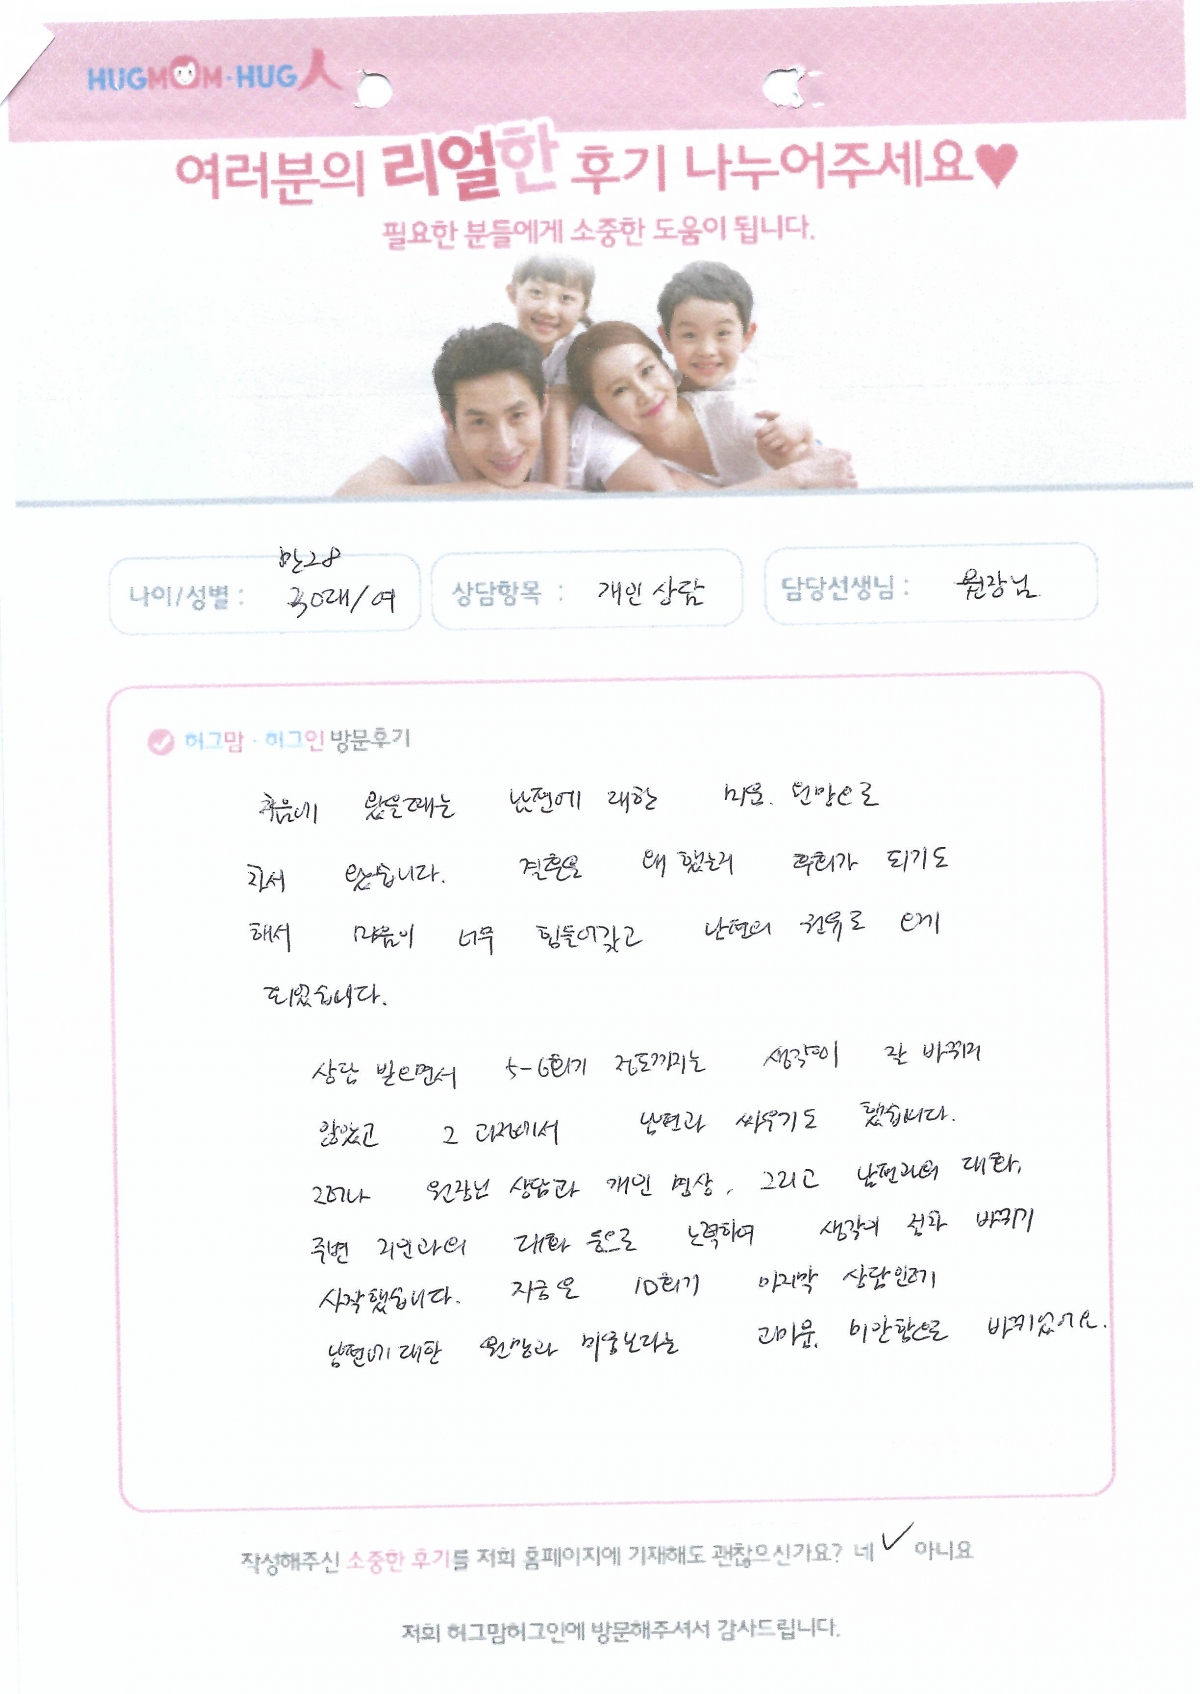 HUGMOM·HUG人
여러분의 리얼한 후기 나누어주세요♥
필요한 분들에게 소중한 도움이 됩니다.
만28
나이/성별 : 30대/여 상담항목 : 개인 상담 담당선생님 : 원장님
허그맘·허그인 방문후기
처음에 왔을때는 남편에 대한 미움, 원망으로
차서 왔습니다. 결혼을 왜 했는지 후회가 되기도
해서 마음이 너무 힘들어갖고 남편의 권유로 오게
되었습니다.
상담 받으면서 5-6회기 정도까지는 생각이 잘 바뀌지
않았고 그 과정에서 남편과 싸우기도 했습니다.
그러나 원장님 상담과 개인 명상, 그리고 남편과의 대화,
주변 지인과의 대화 등으로 노력하여 생각이 점차 바뀌기
시작했습니다. 지금은 10회기 마지막 상담인데
남편에 대한 원망과 미움보다는 고마움, 미안함으로 바뀌었어요.
작성해주신 소중한 후기를 저희 홈페이지에 기재해도 괜찮으신가요? 네 ✓ 아니요
저희 허그맘허그인에 방문해주셔서 감사드립니다.